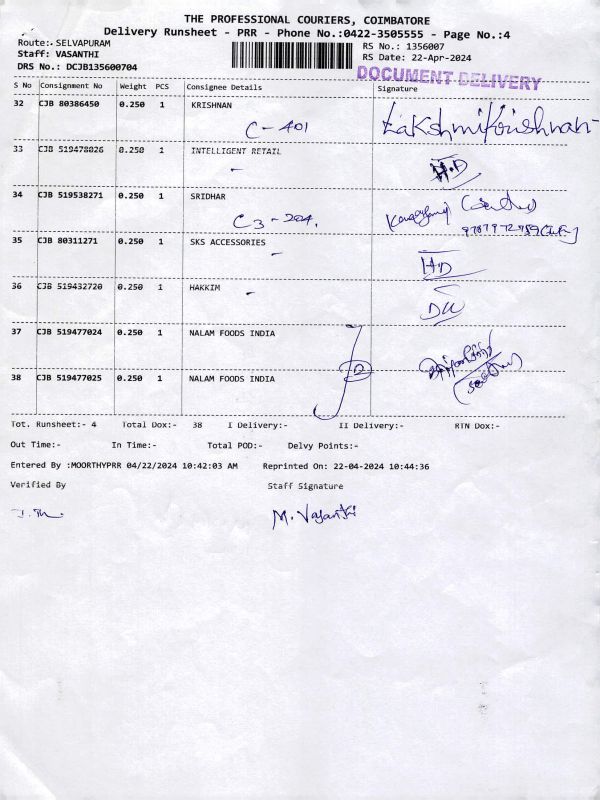 THE PROFESSIONAL COURIERS, COIMBATORE
Delivery Runsheet - PRR - Phone No.:0422-3505555 - Page No.:4
Route:- SELVAPURAM RS No.: 1356007
Staff: VASANTHI RS Date: 22-Apr-2024
DRS No.: DCJB135600704
DOCUMENT DELIVERY
S No Consignment No Weight PCS Consignee Details Signature
32 CJB 80386450 0.250 1 KRISHNAN
C-401 LakshmiKrishnan
33 CJB 519478026 0.250 1 INTELLIGENT RETAIL
- H.D
34 CJB 519538271 0.250 1 SRIDHAR
C3-204.
35 CJB 80311271 0.250 1 SKS ACCESSORIES
- HD
36 CJB 519432720 0.250 1 HAKKIM
-
37 CJB 519477024 0.250 1 NALAM FOODS INDIA
2
38 CJB 519477025 0.250 1 NALAM FOODS INDIA
Tot. Runsheet:- 4 Total Dox:- 38 I Delivery:- II Delivery:- RTN Dox:-
Out Time:- In Time:- Total POD:- Delvy Points:-
Entered By :MOORTHYPRR 04/22/2024 10:42:03 AM Reprinted On: 22-04-2024 10:44:36
Verified By Staff Signature
M. Vasanthi